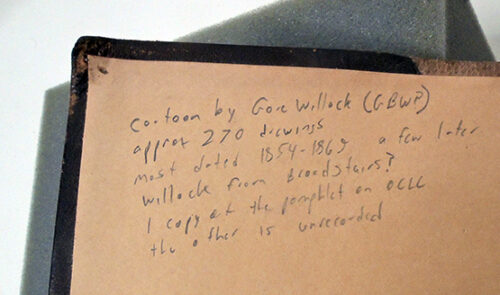 cartoon by Gore Willock (GBW?)
approx 270 drawings
most dated 1854-1869 a few later
Willock from Broadstairs?
1 copy of the pamphlet on OCLC
the other is unrecorded